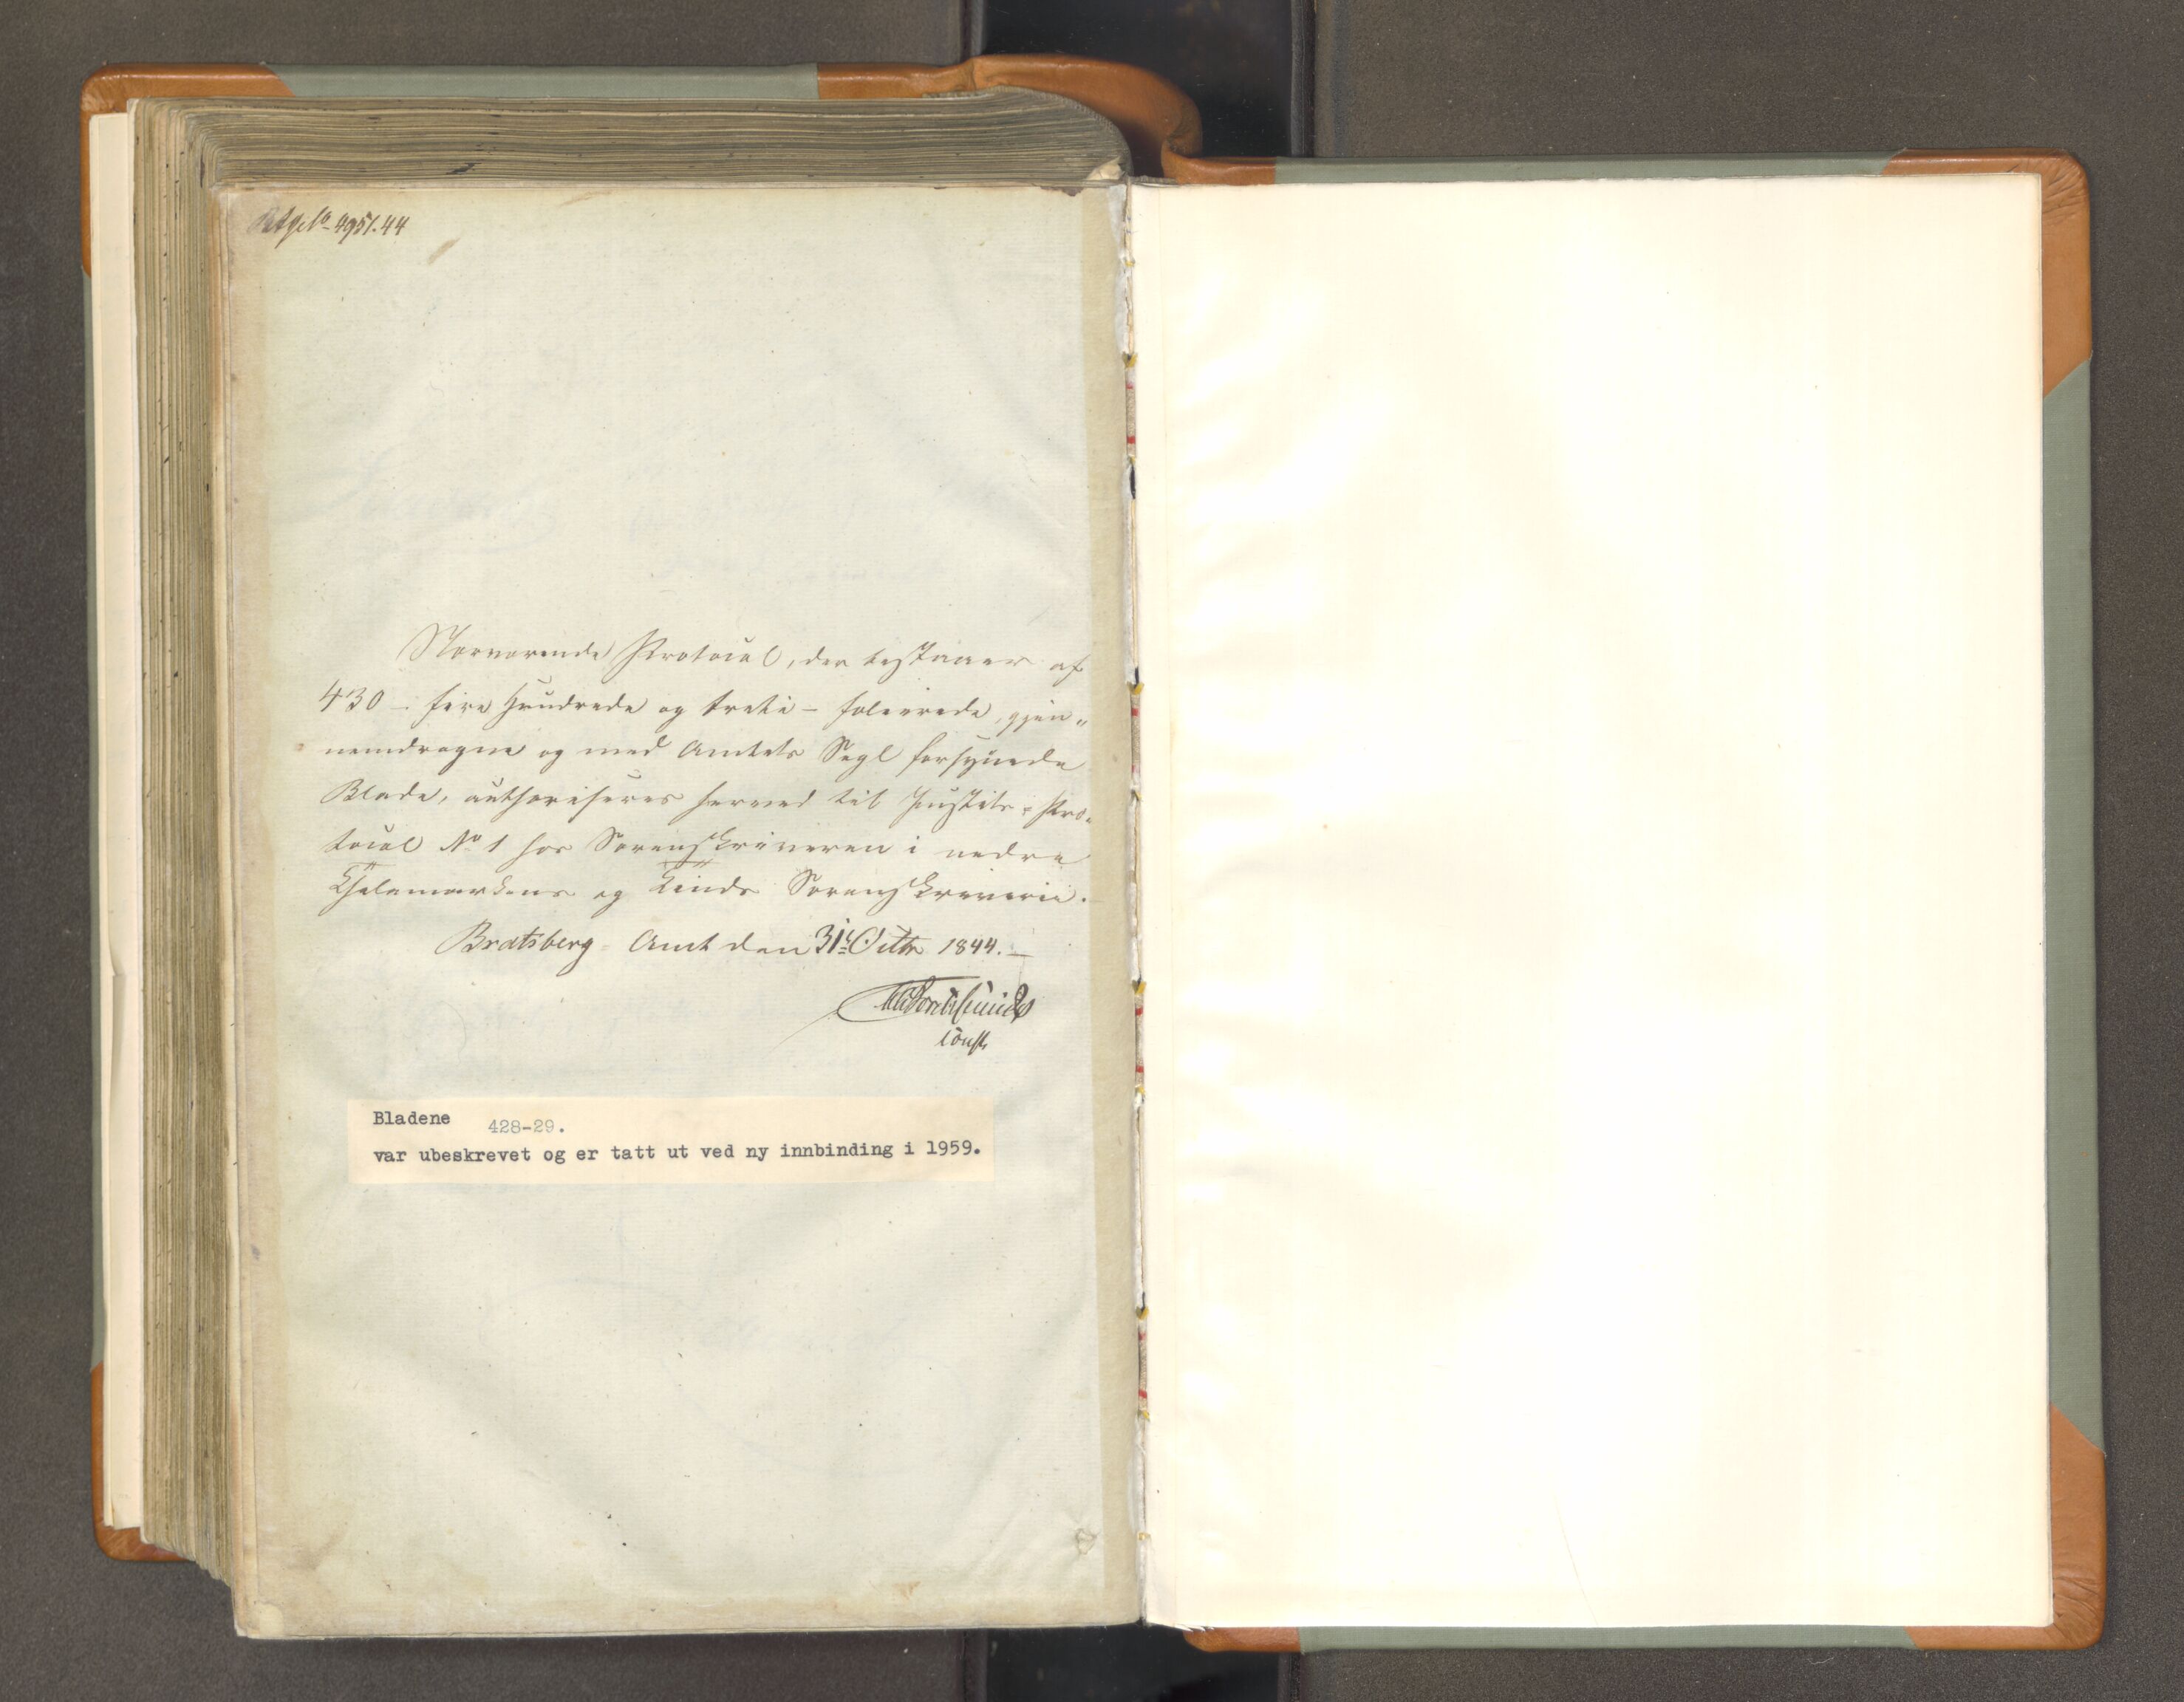 4951.44
Nærværende Protocol, der bestaaer af
430 - fire Hundrede og treti - folierede, gjen„
nemdragne og med Amtets Segl forsynede
Blade, authoriseres herved til Justits-Pro„
tocol No 1 hos Sorenskriveren i nedre
Thelemarkens og Sorenskriverie.
Bratsberg Amt den 31te Octbr 1844. —
const
Bladene 428-29.
var ubeskrevet og er tatt ut ved ny innbinding i 1959.